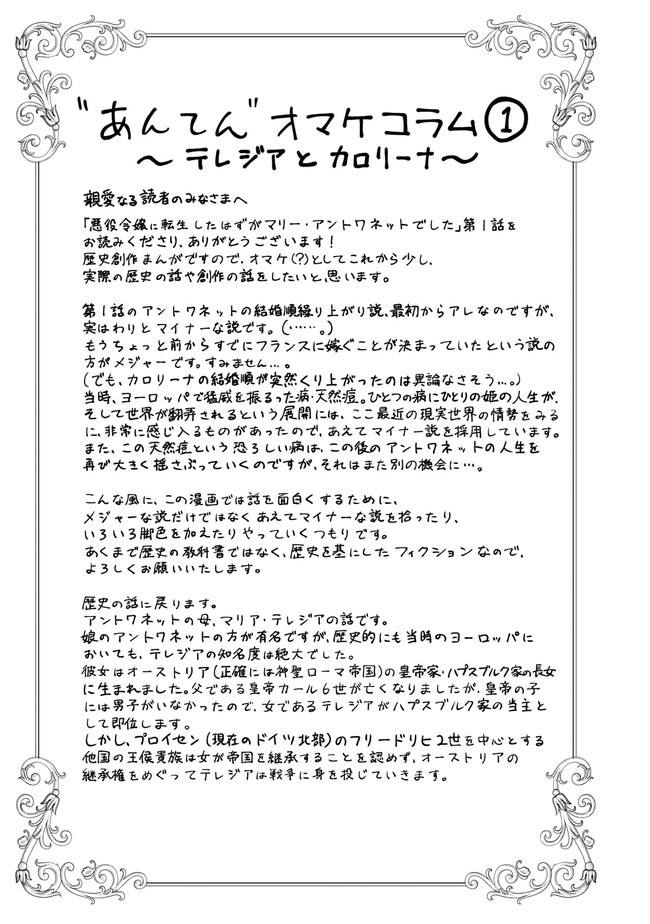 "あんてん"オマケコラム①
〜テレジアとカロリーナ〜
親愛なる読者のみなさまへ
「悪役令嬢に転生したはずがマリー・アントワネットでした」第1話を
お読みくださり、ありがとうございます！
歴史創作まんがですので、オマケ(?)としてこれから少し、
実際の歴史の話や創作の話をしたいと思います。
第1話のアントワネットの結婚順繰り上がり説、最初からアレなのですが、
実はわりとマイナーな説です。(……。)
もうちょっと前からすでにフランスに嫁ぐことが決まっていたという説の
方がメジャーです。すみません…。
(でも、カロリーナの結婚順が突然くり上がったのは異論なさそう…。)
当時、ヨーロッパで猛威を振るった病・天然痘。ひとつの病にひとりの姫の人生が、
そして世界が翻弄されるという展開には、ここ最近の現実世界の情勢をみる
に、非常に感じ入るものがあったので、あえてマイナー説を採用しています。
また、この天然痘という恐ろしい病は、この後のアントワネットの人生を
再び大きく揺さぶっていくのですが、それはまた別の機会に…。
こんな風に、この漫画では話を面白くするために、
メジャーな説だけではなくあえてマイナーな説を拾ったり、
いろいろ脚色を加えたりやっていくつもりです。
あくまで歴史の教科書ではなく、歴史を基にしたフィクションなので、
よろしくお願いいたします。
歴史の話に戻ります。
アントワネットの母、マリア・テレジアの話です。
娘のアントワネットの方が有名ですが、歴史的にも当時のヨーロッパに
おいても、テレジアの知名度は絶大でした。
彼女はオーストリア(正確には神聖ローマ帝国)の皇帝家・ハプスブルク家の長女
に生まれました。父である皇帝カール6世が亡くなりましたが、皇帝の子
には男子がいなかったので、女であるテレジアがハプスブルク家の当主と
して即位します。
しかし、プロイセン(現在のドイツ北部)のフリードリヒ2世を中心とする
他国の王侯貴族は女が帝国を継承することを認めず、オーストリアの
継承権をめぐってテレジアは戦争に身を投じていきます。